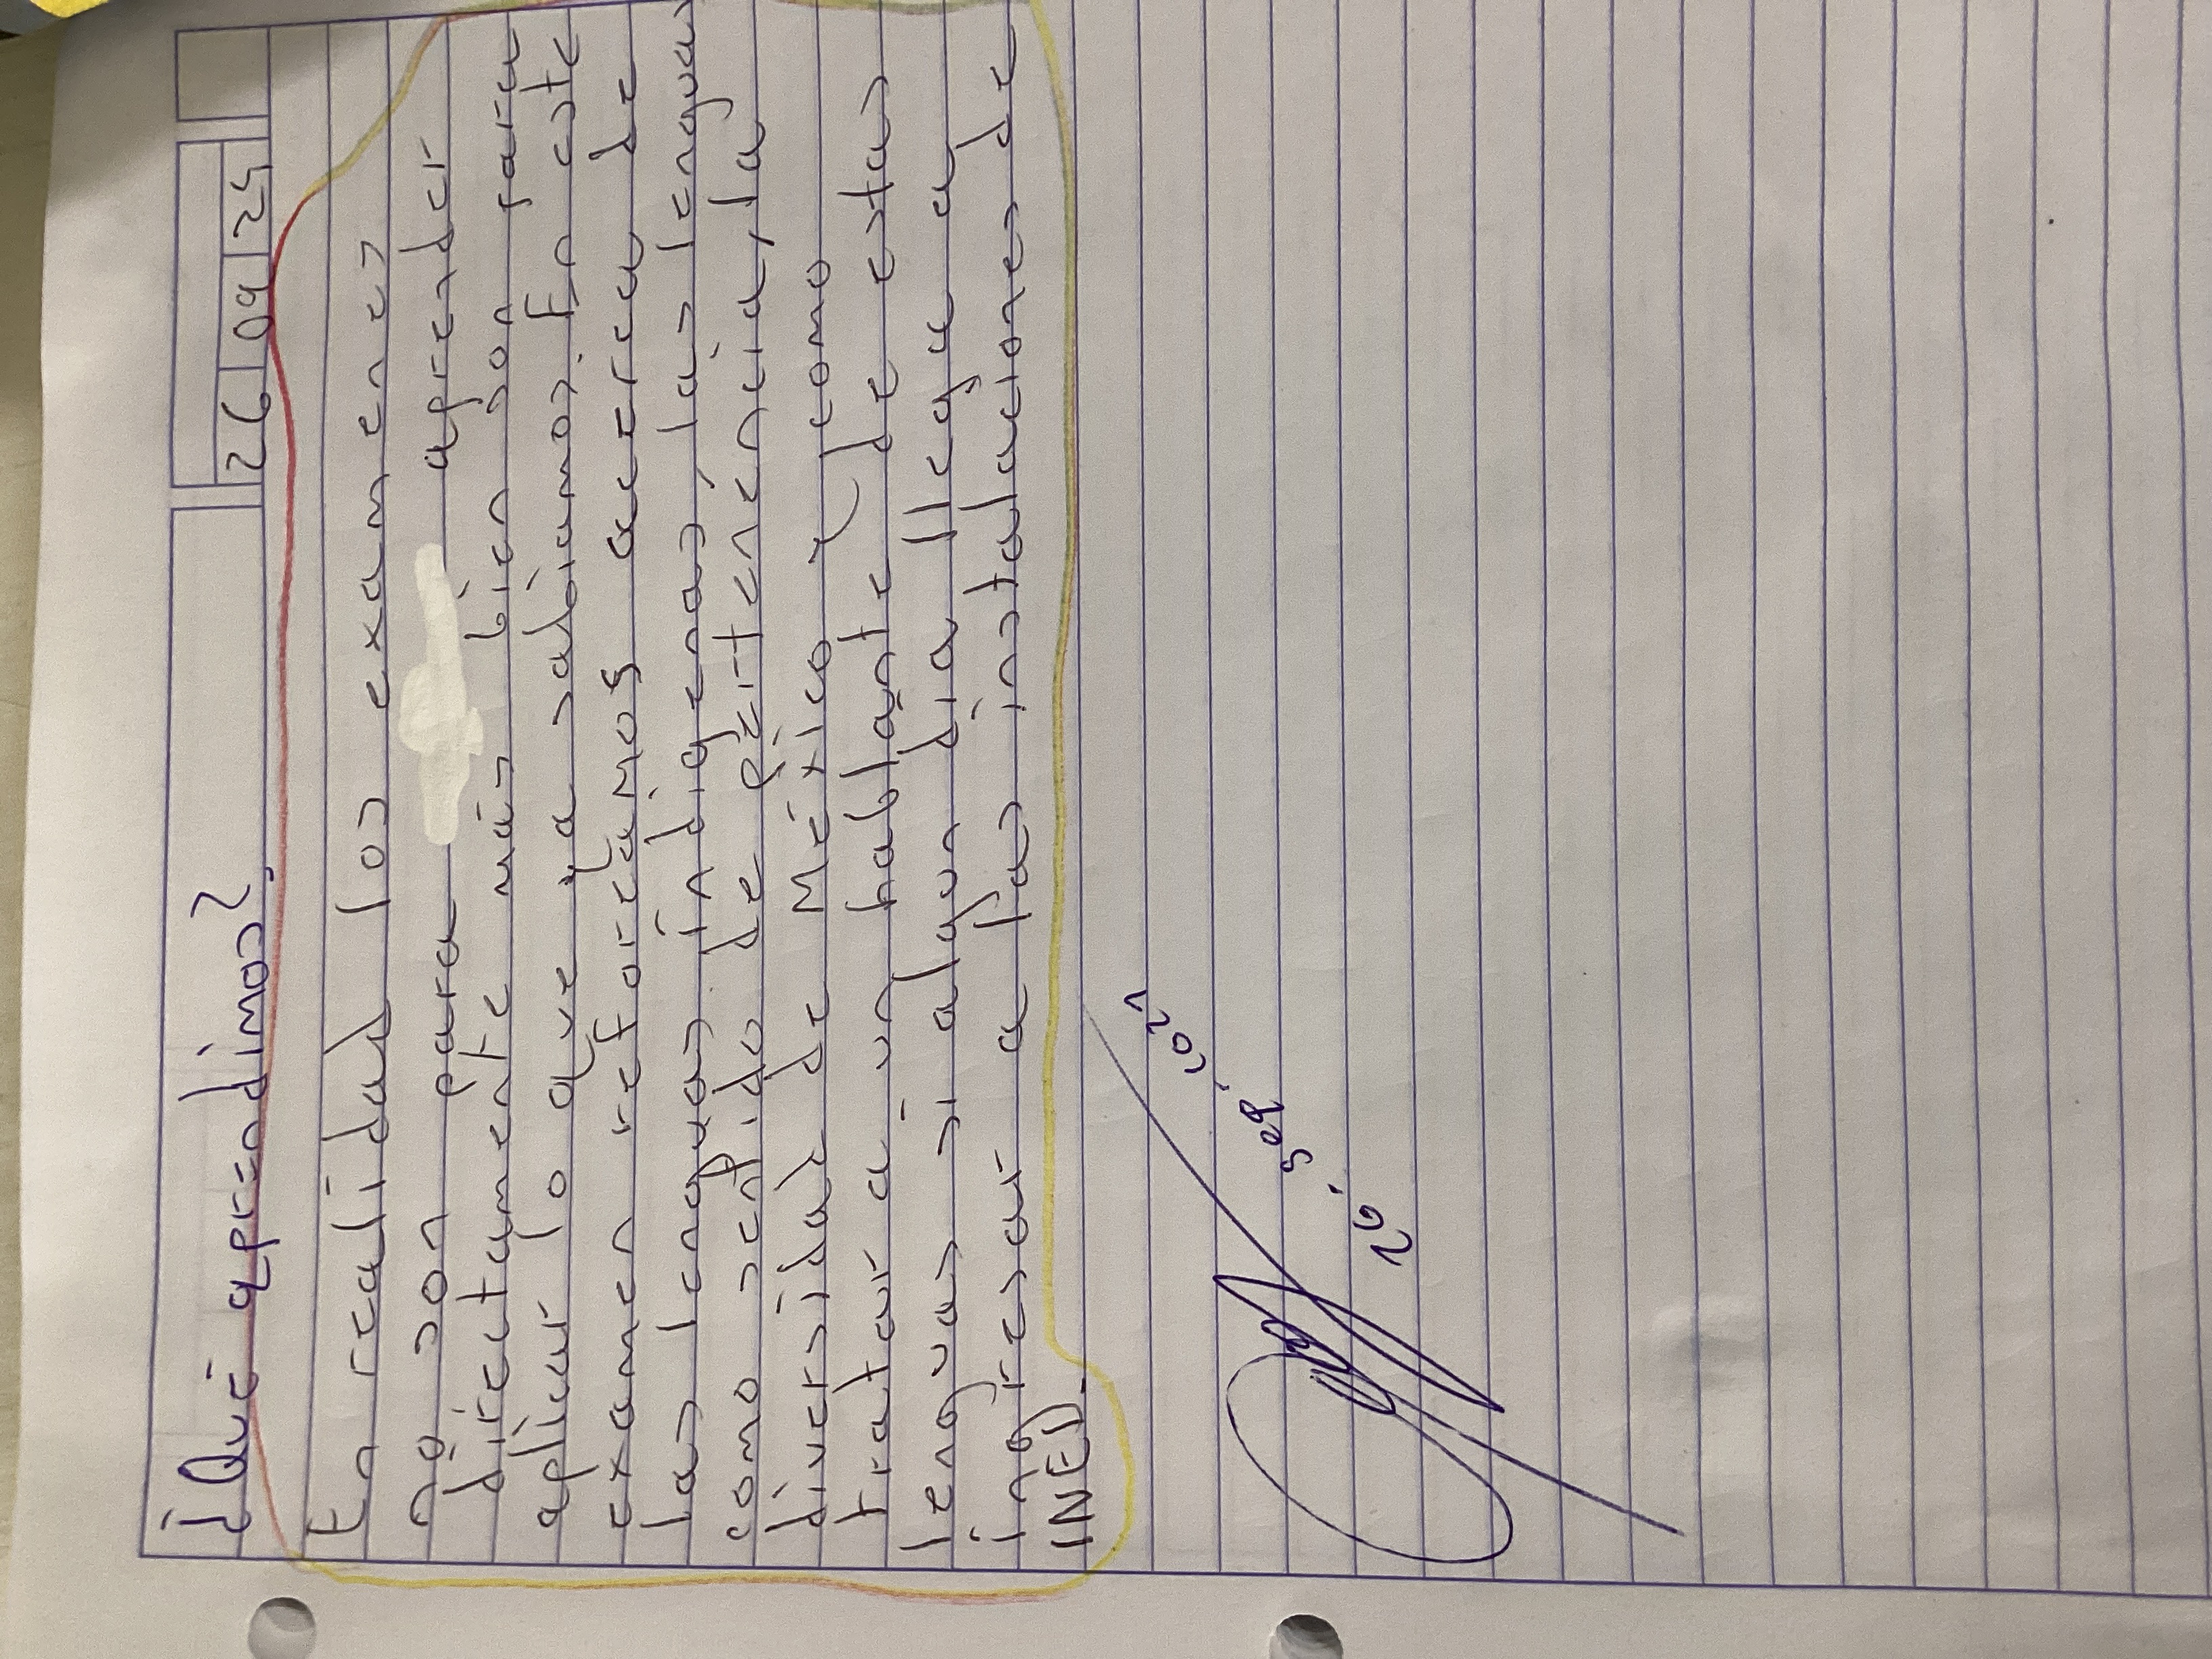 ¿Qué aprendimos?
26 09 25
En realidad los examenes
no son para aprender
directamente más bien son para
aplicar lo que ya sabiamos. En este
examen reforcamos acerca de
las lenguas indígenas, las lenguas
como sentido de pertenencia, la
diversidad de México y como
tratar a un hablante de estas
lenguas si algun dia llega a
ingresar a las instalaciones de
INED.
26. sep. 2025